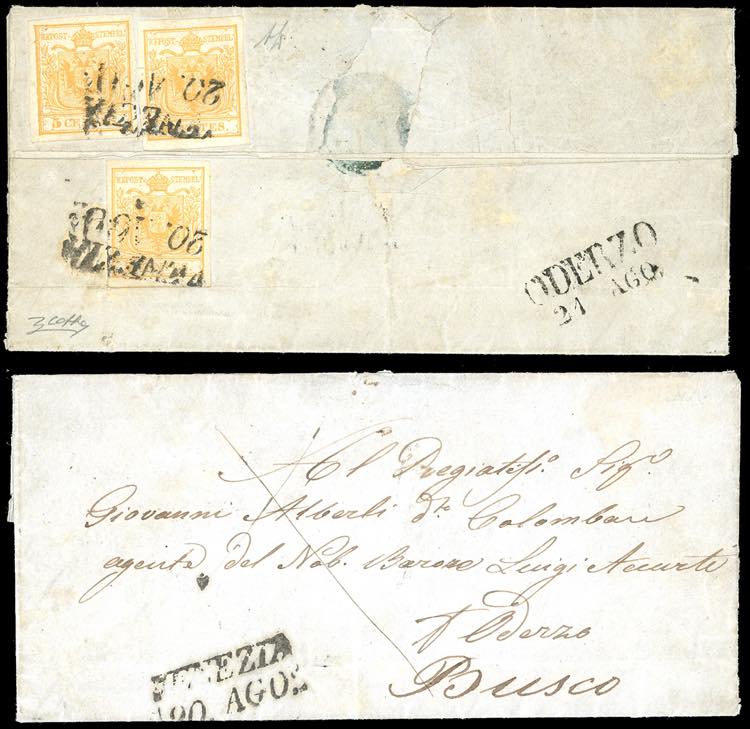 KREUZPOST-STEMPEL
KREUZPOST-STEMPEL
5 CE
ES.
20. AGO
VENEZIA
KREUZPOST-STEMPEL
20. AGO
VENEZIA
ODERZO
21 AGO.
Al Pregiatiss.º Sigº.
Giovanni Alberti dto Colomban
agente del Nob. Barone Luigi Accurti
A Oderzo
Busco
VENEZIA
20. AGO.